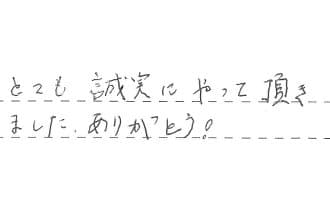 とても誠実にやって頂き
ました。ありがとう!